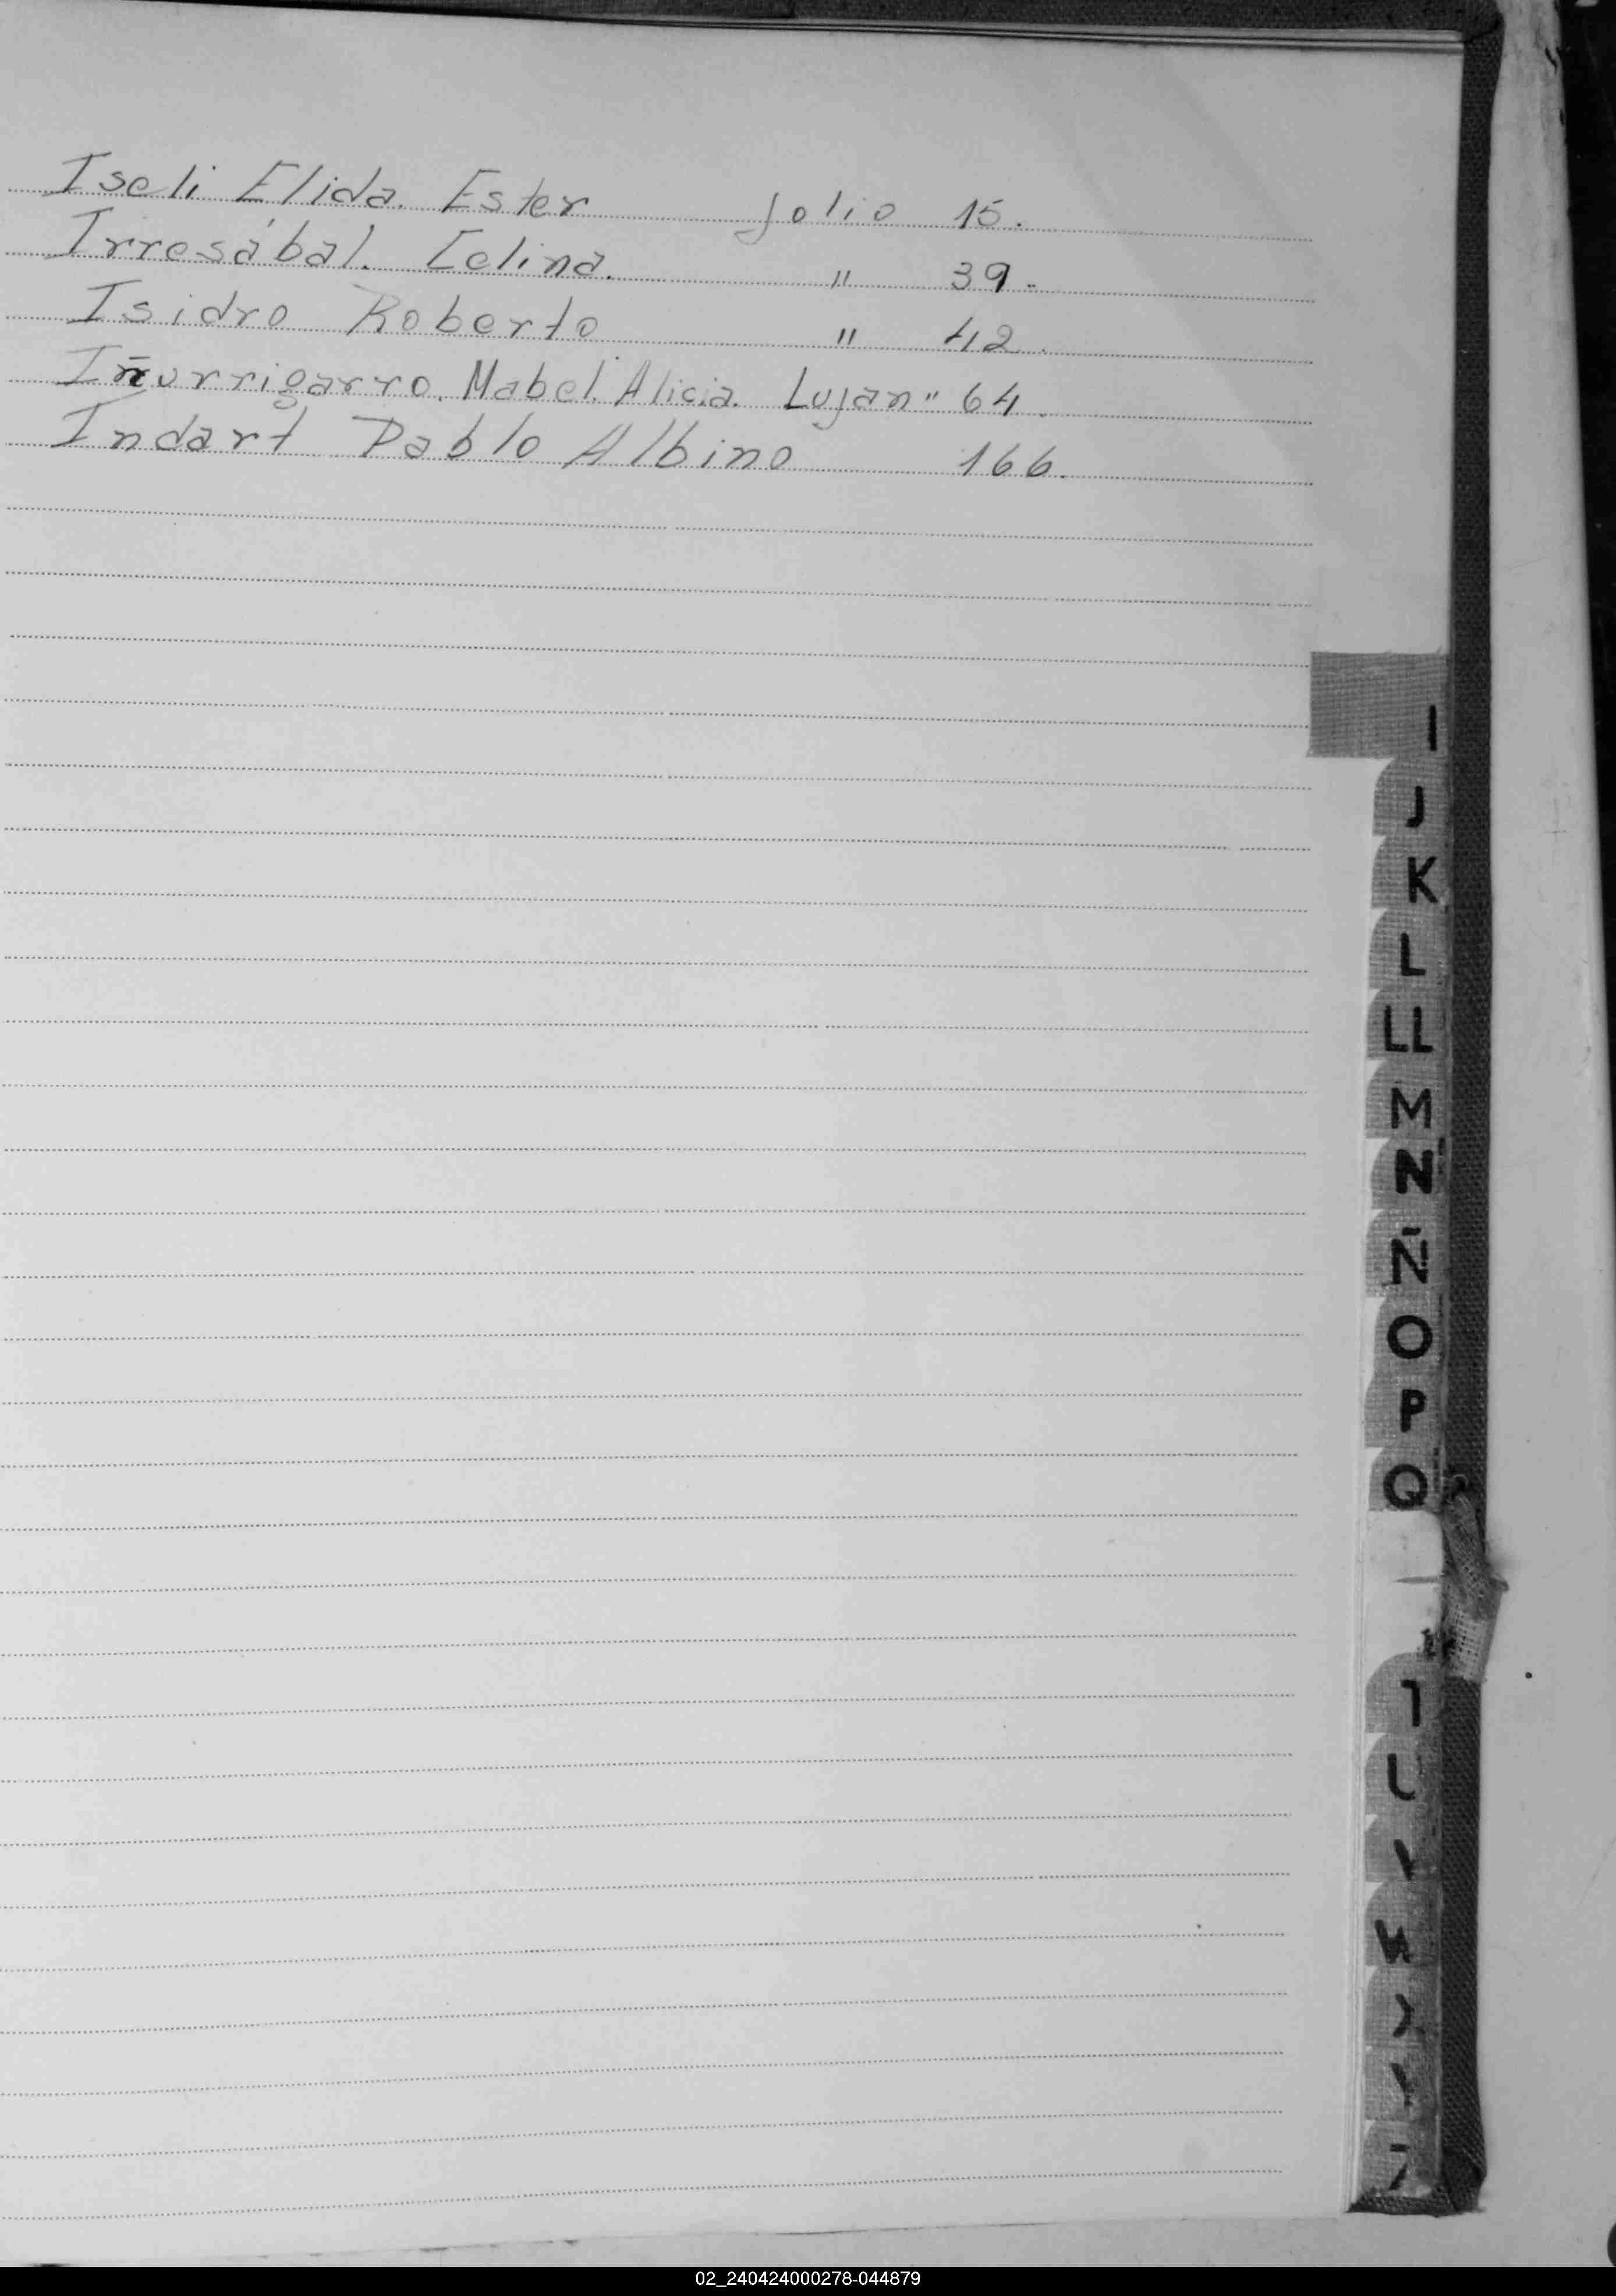 Iseli Elida. Ester folio 15.
Irresábal. Celina. " 39.
Isidro Roberto " 42.
Iñurrigarro. Mabel. Alicia. Lujan " 64.
Indart Pablo Albino 166.
I
J
K
L
LL
M
N
Ñ
O
P
Q
02_240424000278-044879